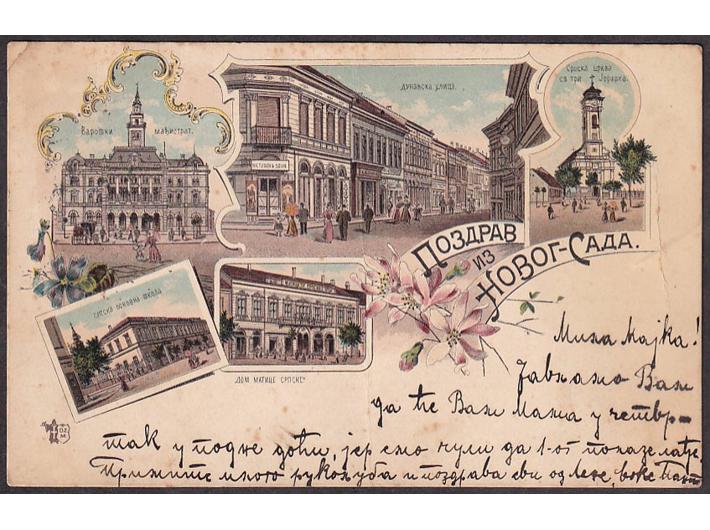 Варошки магистрат.
Дунавска улица.
Српска црква
св. три Јерарха.
Поздрав
из
Новог-Сада.
Српска основна школа
„Дом Матице Српске“
Мила мајка!
Јављамо Вам
да ће Вам Маша у четвр-
так у подне доћи, јер смо чули да 1-ог полазе лађе.
Примите много рукољуба и поздрава сви од